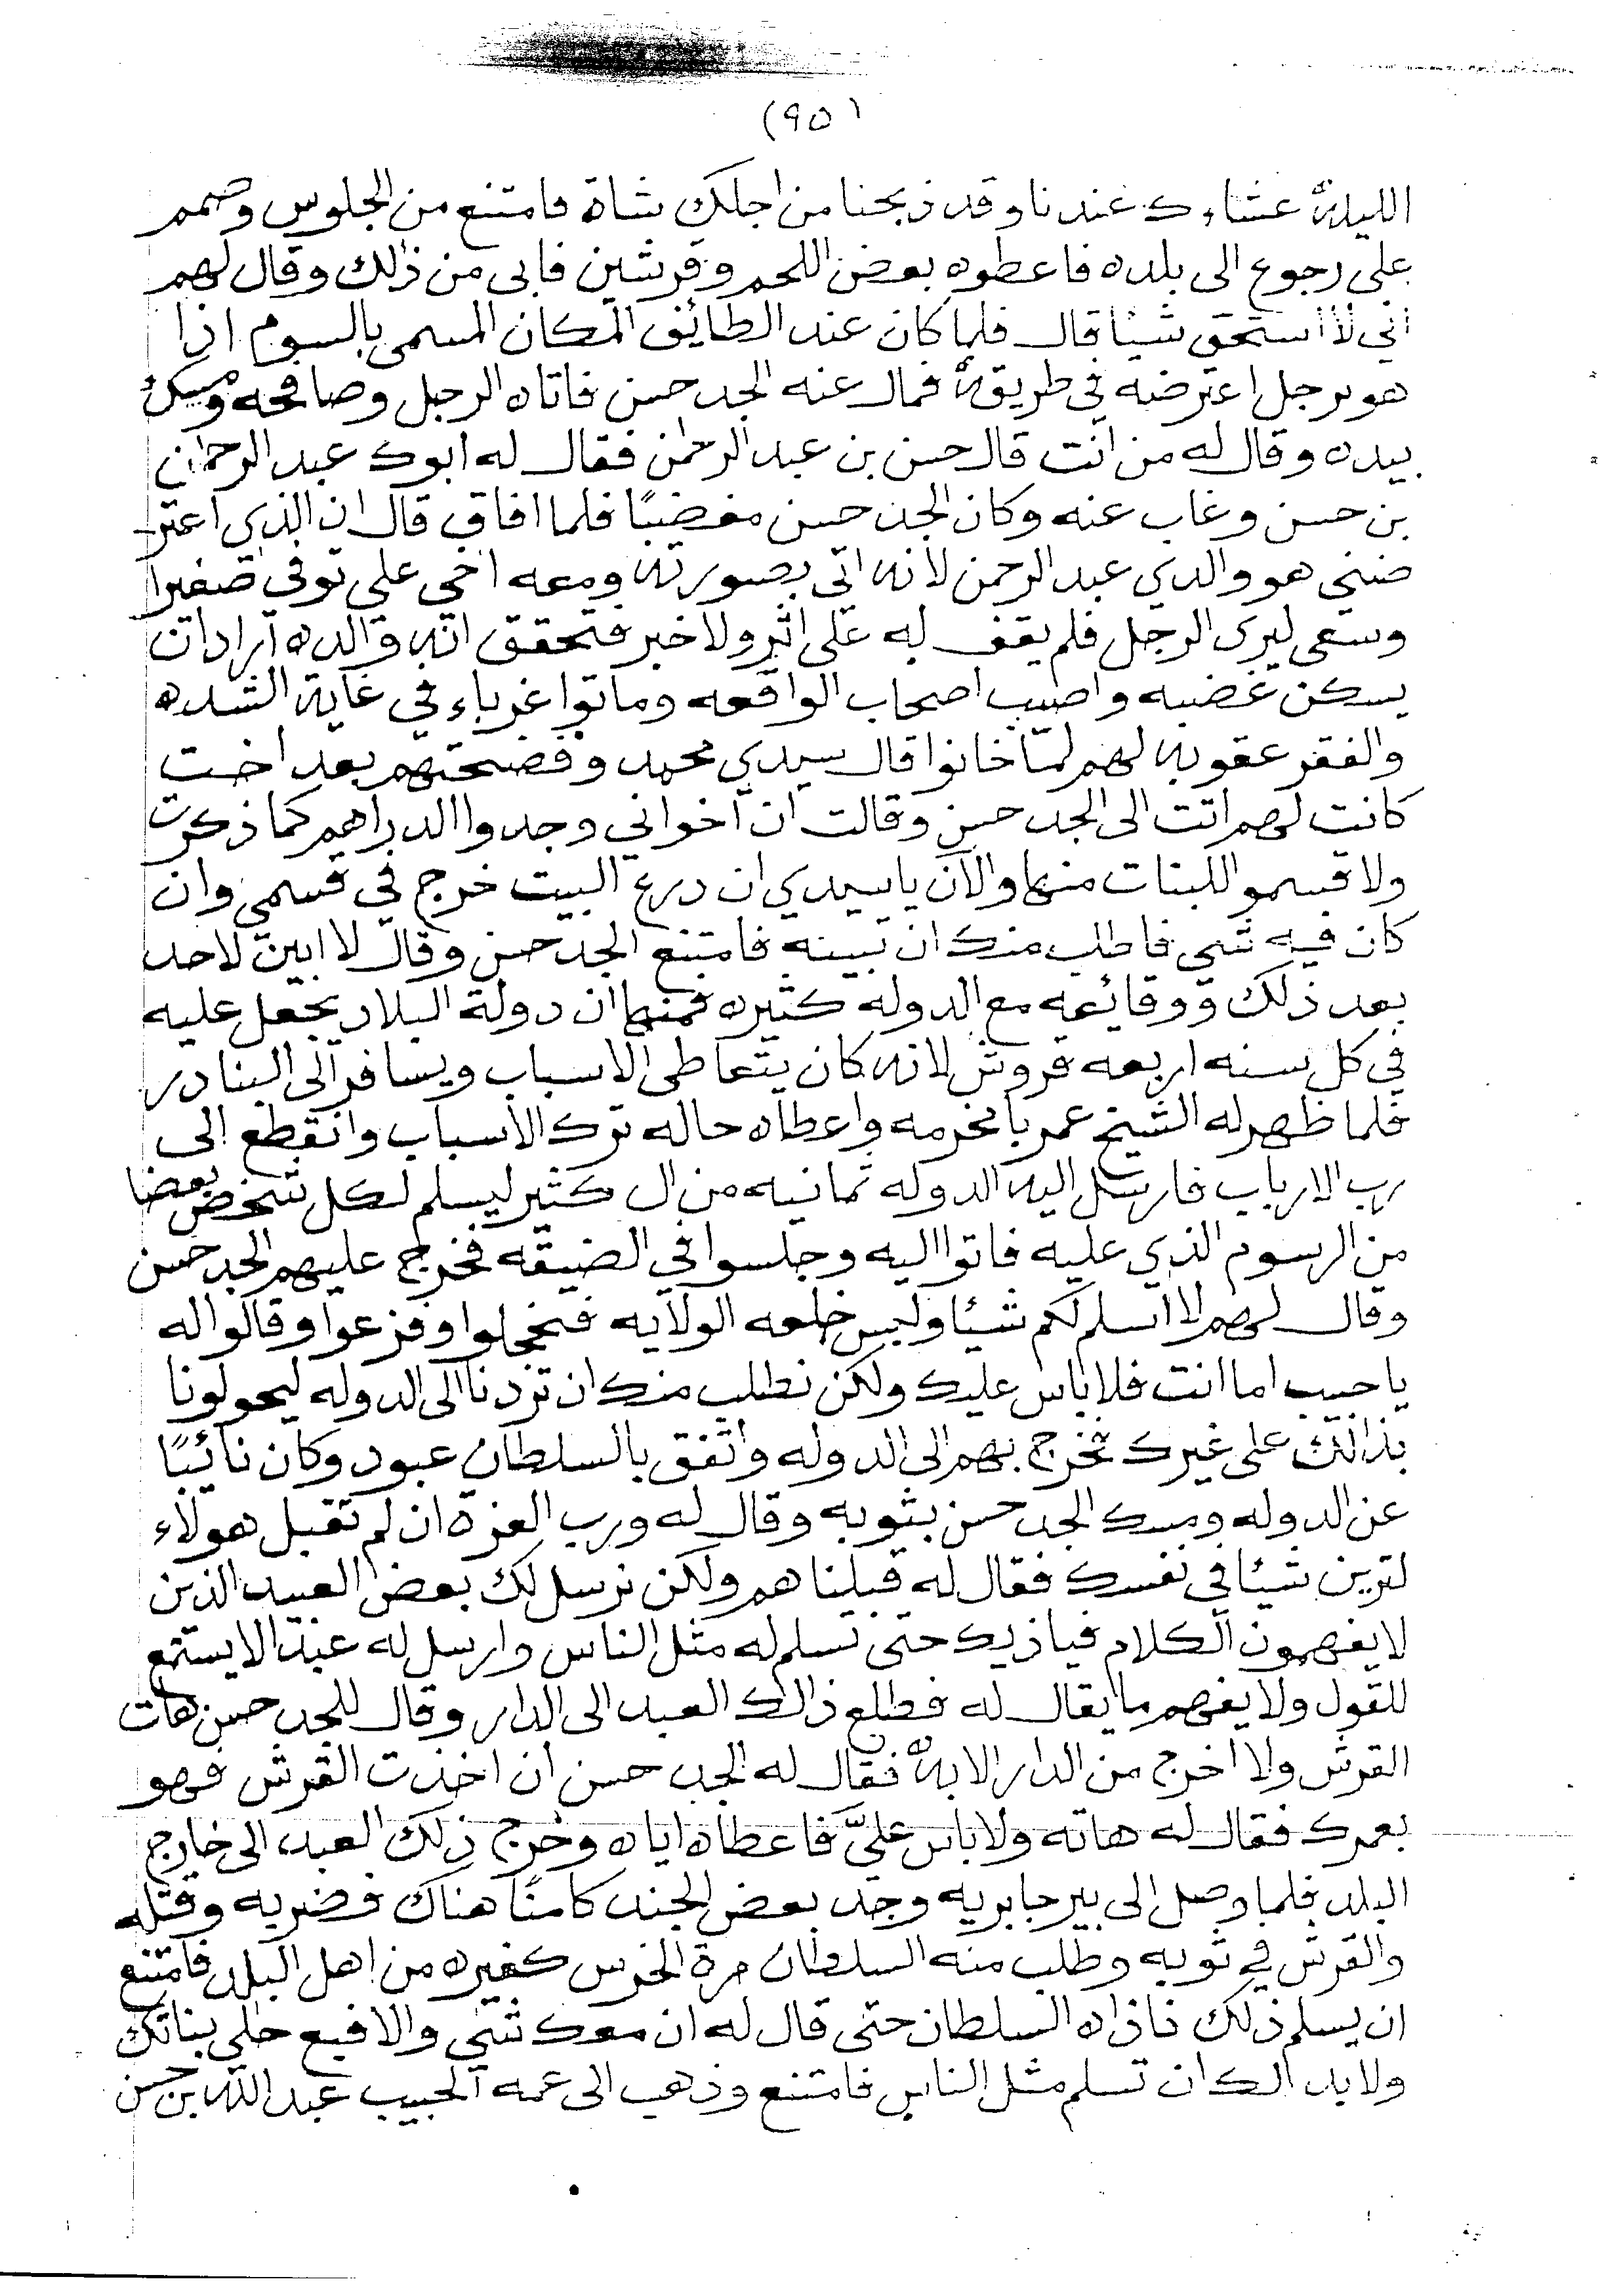 (٩٥)
الليلة عشاءك عندنا وقد ذبحنا من اجلك شاة فامتنع من الجلوس وصمم
على رجوع الى بلده فاعطوه بعض اللحم وقرشين فابى من ذلك وقال لهم
اني لا استحق شيئا قال فلما كان عند الطائف المكان المسمى بالسوم اذا
هو برجل اعترضه في طريقه فمال عنه الجد حسن فاتاه الرجل وصافحه ومسك
بيده وقال له من انت قال حسن بن عبد الرحمن فقال له ابوك عبد الرحمان
بن حسن وغاب عنه وكان الجد حسن مغضبًا فلما افاق قال ان الذي اعتر
ضني هو والدي عبد الرحمن لانه اتى بصورته ومعه اخي علي توفى صغيرا
وسعى ليرى الرجل فلم يقف له على اثر ولا خبر فتحقق انه والده اراد ان
يسكن غضبه واصيب اصحاب الواقعه وماتوا غرباء في غاية الشده
والفقر عقوبه لهم لمّا خانوا قال سيدي محمد وفضحتهم بعد اخت
كانت لهم اتت الى الجد حسن وقالت ان اخواني وجدوا الدراهم كما ذكرت
ولا قسموا للبنات منها والآن يا سيدي ان درع البيت خرج في قسمي وان
كان فيه شي فاطلب منك ان تبينه فامتنع الجد حسن وقال لا ابين لاحد
بعد ذلك ووقائعه مع الدوله كثيره فمنها ان دولة البلاد يجعل عليه
في كل سنه اربعه قروش لانه كان يتعاطى الاسباب ويسافر الى البنادر
فلما ظهر له الشيخ عمر بامخرمه واعطاه حاله ترك الاسباب وانقطع الى
رب الارباب فارسل اليه الدوله ثمانيه من ال كثير ليسلم لكل شخص بعضا
من الرسوم الذي عليه فاتوا اليه وجلسوا في الضيقه فخرج عليهم الجد حسن
وقال لهم لا اسلم لكم شيئا ولبس خلعه الولايه فخجلوا وفزعوا وقالوا له
يا حبيب اما انت فلا باس عليك ولكن نطلب منك ان تردنا الى الدوله ليحولونا
بذالك على غيرك فخرج بهم الى الدوله واتفق بالسلطان عبود وكان نائبًا
عن الدوله ومسك الجد حسن بثوبه وقال له ورب العزه ان لم تقبل هولاء
لترين شيئا في نفسك فقال له قبلناهم ولكن نرسل لك بعض العبيد الذين
لا يفهمون الكلام فياذيك حتى تسلم له مثل الناس وارسل له عبدا لا يستمع
للقول ولا يفهم ما يقال له فطلع ذالك العبد الى الدار وقال للجد حسن هات
القرش ولا اخرج من الدار الا به فقال له الجد حسن ان اخذت القرش فهو
بعمرك فقال له هاته ولا باس عليَّ فاعطاه اياه وخرج ذلك العبد الى خارج
البلد فلما وصل الى بير جابريه وجد بعض الجند كامنًا هناك فضربه وقتله
والقرش في ثوبه وطلب منه السلطان مرة الخرس كغيره من اهل البلد فامتنع
ان يسلم ذلك فاذاه السلطان حتى قال له ان معك شي والا فبع حلي بناتك
ولابد الك ان تسلم مثل الناس فامتنع وذهب الى عمه الحبيب عبد الله بن حسن